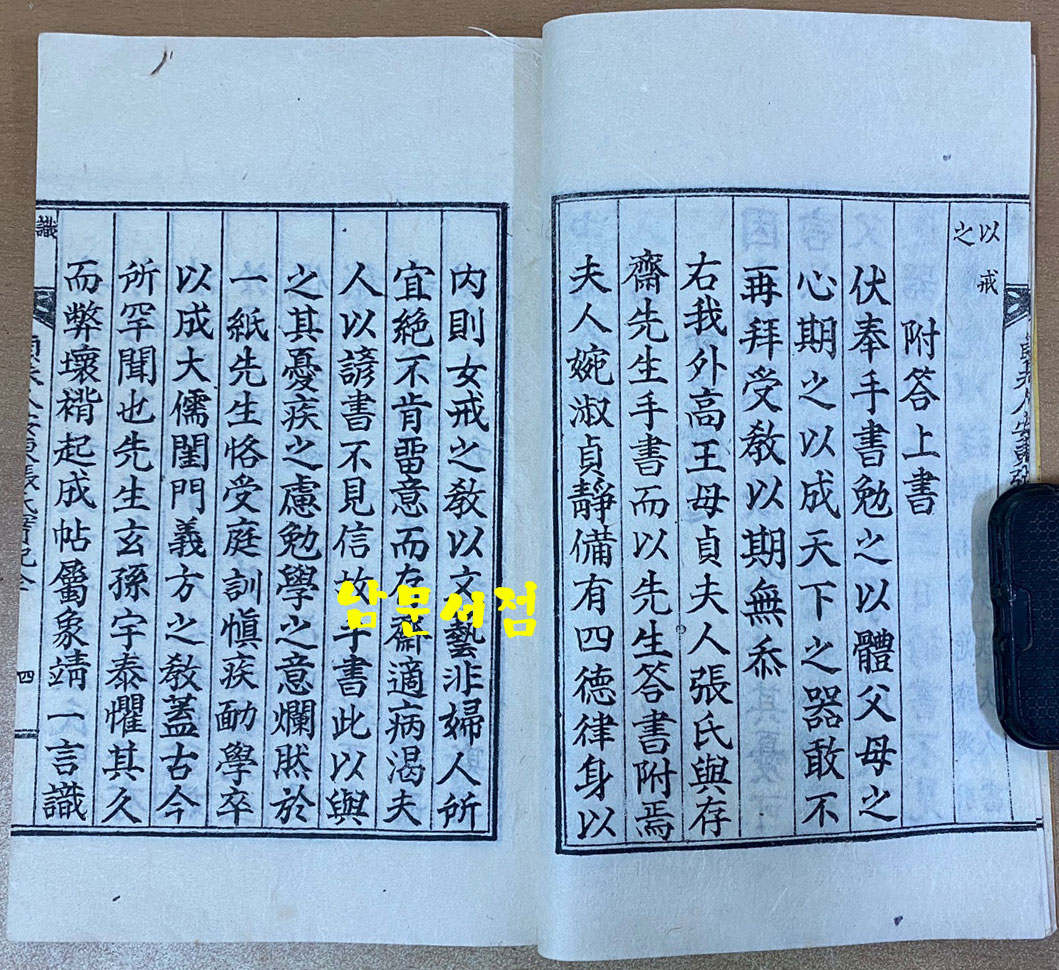 夫人安東張
以戒
之
附答上書
伏奉手書勉之以體父母之
心期之以成天下之器敢不
再拜受敎以期無忝
右我外高王母貞夫人張氏與存
齋先生手書而以先生答書附焉
夫人婉淑貞靜備有四德律身以
內則女戒之敎以文藝非婦人所
宜絶不肯畱意而存齋適病渴夫
人以諺書不見信故手書此以與
之其憂疾之慮勉學之意爛然於
一紙先生恪受庭訓愼疾勔學卒
以成大儒閨門義方之敎蓋古今
所罕聞也先生玄孫宇泰懼其久
而弊壞褙起成帖屬象靖一言識
識
張氏實紀全
四
남문서점